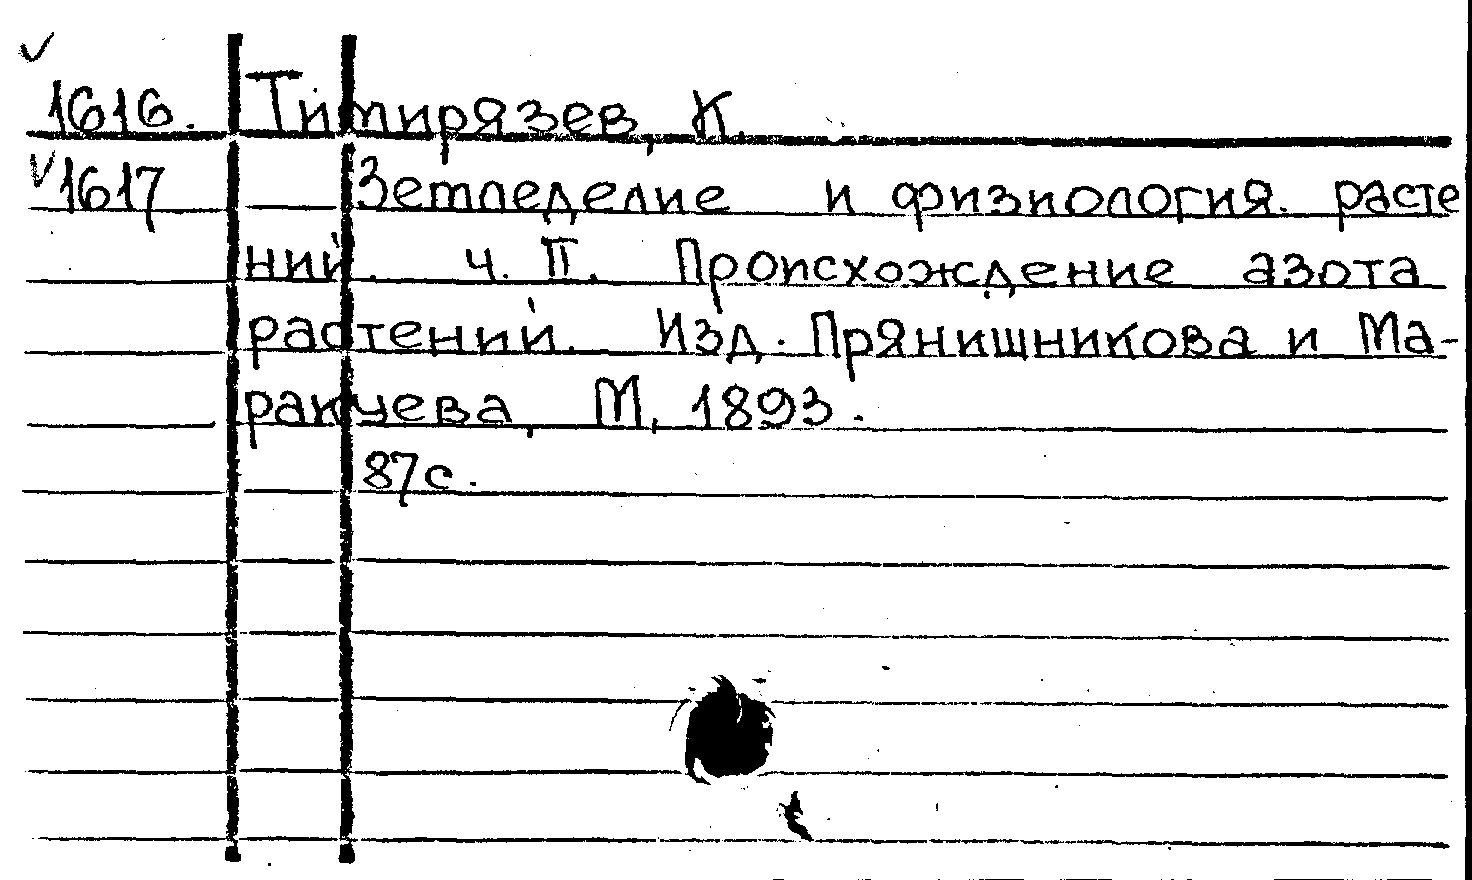 ✓
1616. Тимирязев, К.
✓1617 Земледелие и физиология. расте
ний. ч. II. Происхождение азота
растений. Изд. Прянишникова и Ма-
ракуева, М, 1893.
87с.